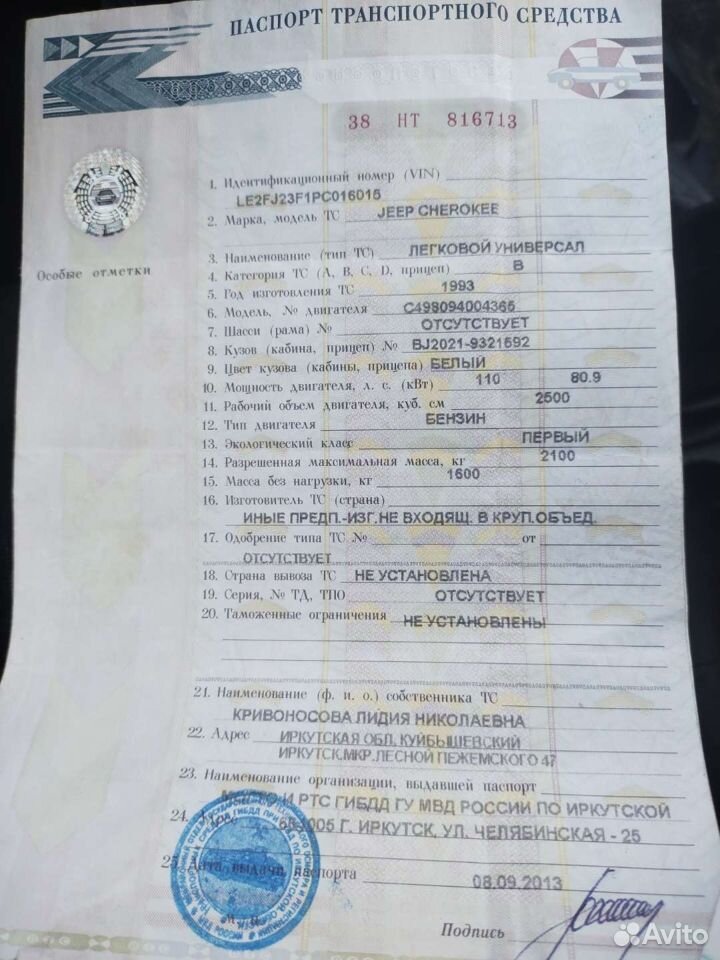 ПАСПОРТ ТРАНСПОРТНОГО СРЕДСТВА
38 НТ 816713
Особые отметки
1. Идентификационный номер (VIN)
LE2FJ23F1PC016015
2. Марка, модель ТС JEEP CHEROKEE
3. Наименование (тип ТС) ЛЕГКОВОЙ УНИВЕРСАЛ
4. Категория ТС (A, B, C, D, прицеп) B
5. Год изготовления ТС 1993
6. Модель, № двигателя C498094004365
7. Шасси (рама) № ОТСУТСТВУЕТ
8. Кузов (кабина, прицеп) № BJ2021-9321592
9. Цвет кузова (кабины, прицепа) БЕЛЫЙ
10. Мощность двигателя, л. с. (кВт) 110 80.9
11. Рабочий объем двигателя, куб. см 2500
12. Тип двигателя БЕНЗИН
13. Экологический класс ПЕРВЫЙ
14. Разрешенная максимальная масса, кг 2100
15. Масса без нагрузки, кг 1600
16. Изготовитель ТС (страна)
ИНЫЕ ПРЕДП.-ИЗГ.НЕ ВХОДЯЩ. В КРУП.ОБЪЕД.
17. Одобрение типа ТС № от
ОТСУТСТВУЕТ
18. Страна вывоза ТС НЕ УСТАНОВЛЕНА
19. Серия, № ТД, ТПО ОТСУТСТВУЕТ
20. Таможенные ограничения НЕ УСТАНОВЛЕНЫ
21. Наименование (ф. и. о.) собственника ТС
КРИВОНОСОВА ЛИДИЯ НИКОЛАЕВНА
22. Адрес ИРКУТСКАЯ ОБЛ. КУЙБЫШЕВСКИЙ
ИРКУТСК.МКР.ЛЕСНОЙ ПЕЖЕМСКОГО 47
23. Наименование организации, выдавшей паспорт
И РТС ГИБДД ГУ МВД РОССИИ ПО ИРКУТСКОЙ
24. Г. ИРКУТСК, УЛ. ЧЕЛЯБИНСКАЯ - 25
25. Дата выдачи паспорта 08.09.2013
М. П.
Подпись
Avito